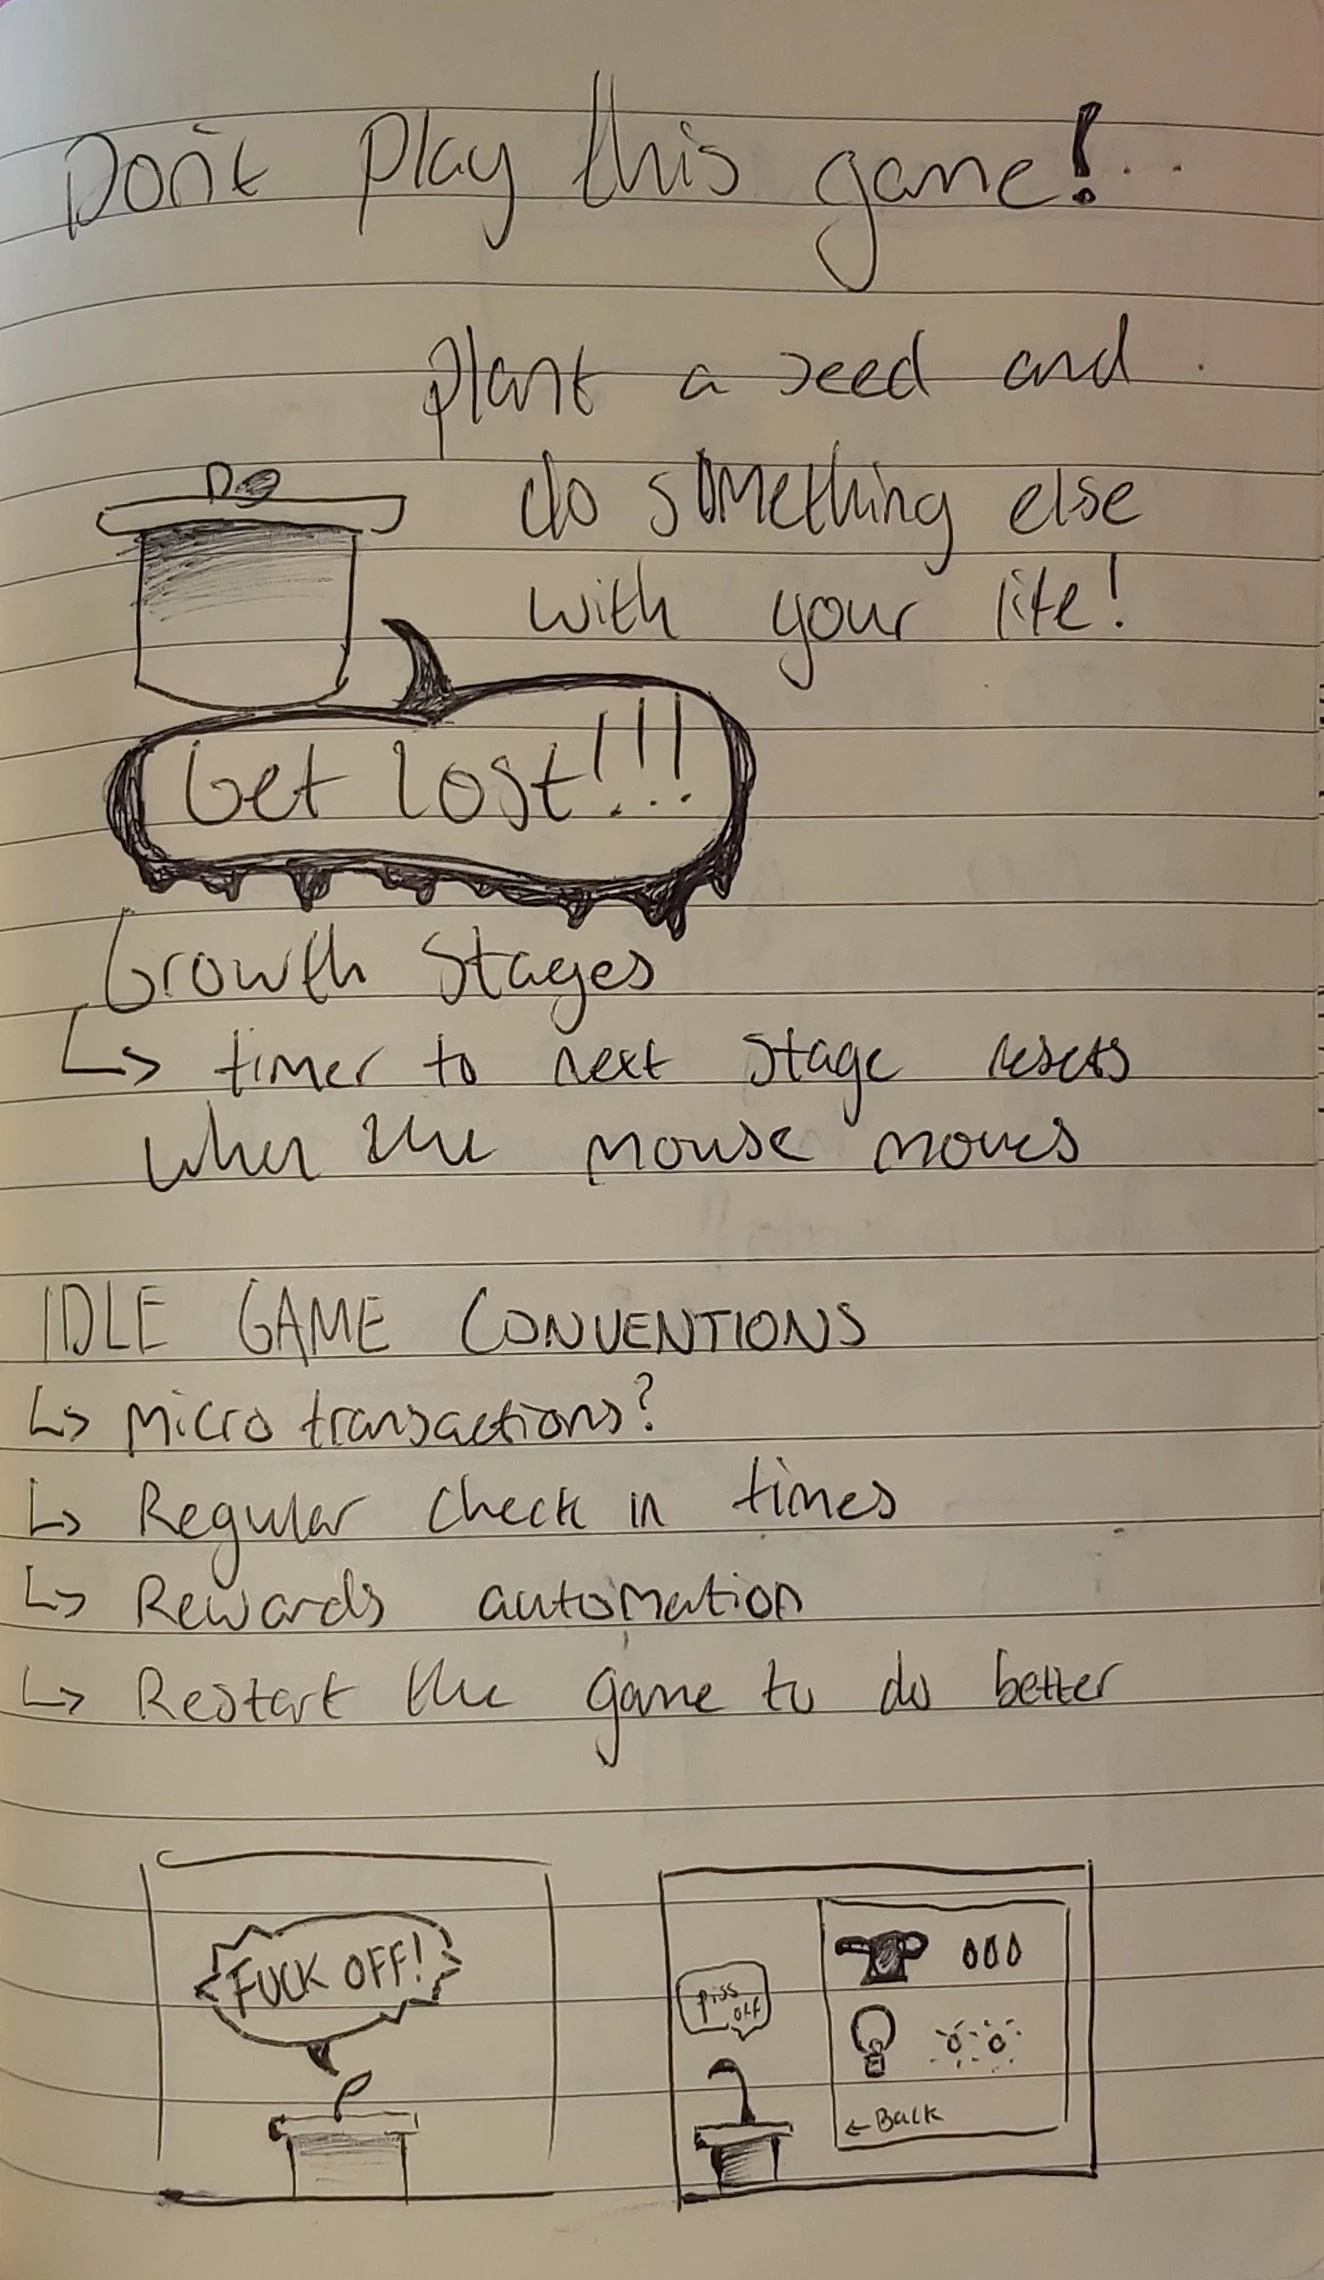 Don't play this game!...
plant a seed and
do something else
with your life!
Get Lost!!!
Growth Stages
↳ timer to next stage resets
when the mouse moves
IDLE GAME CONVENTIONS
↳ Micro transactions?
↳ Regular check in times
↳ Rewards automation
↳ Restart the game to do better
FUCK OFF!
piss
off
← Back